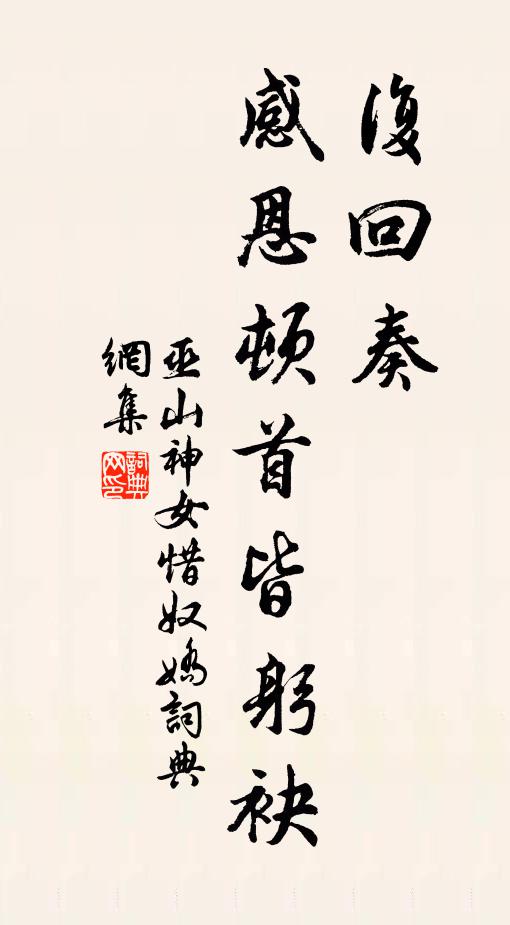 復回奏
感恩頓首皆躬袂
巫山神女惜奴嬌詞典
網集
詞典網印